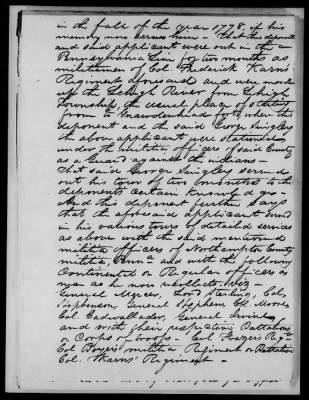 in the fall of the year 1778, if his
memory now serves him — That this deponent
and said applicant were out in the
Pennsylvania Line for two months as
militiamen of Col Frederick Kerns'
Regiment aforesaid, and were march
up the Lehigh River from Lehigh
Township, the usual place of starting
from to Gnawdenhead for where this
deponent and the said George Swigley
the above applicant were stationed
under the militia officers of said County
as a Guard against the indians —
That said George Swigley served
out his tour of two months to the
deponents certain knowledge
And this deponent further says
that the aforesaid applicant served
in his various tours of detailed services
as above with the said mentioned
militia officers of Northampton County
militia, Penna and with the following
Continental or Regular officers as
near as he now recollects, Viz —
General Mercer, Lord Sterling, Col.
Stephenson, General Stephens Col. Moore
Col. Cadwallader, General Irvine
and with their respective Battalions
or Corps of troops — Col Frazers Reg—
Col Boyers militia Regiment or Battalion
Col. Kearns' Regiment —